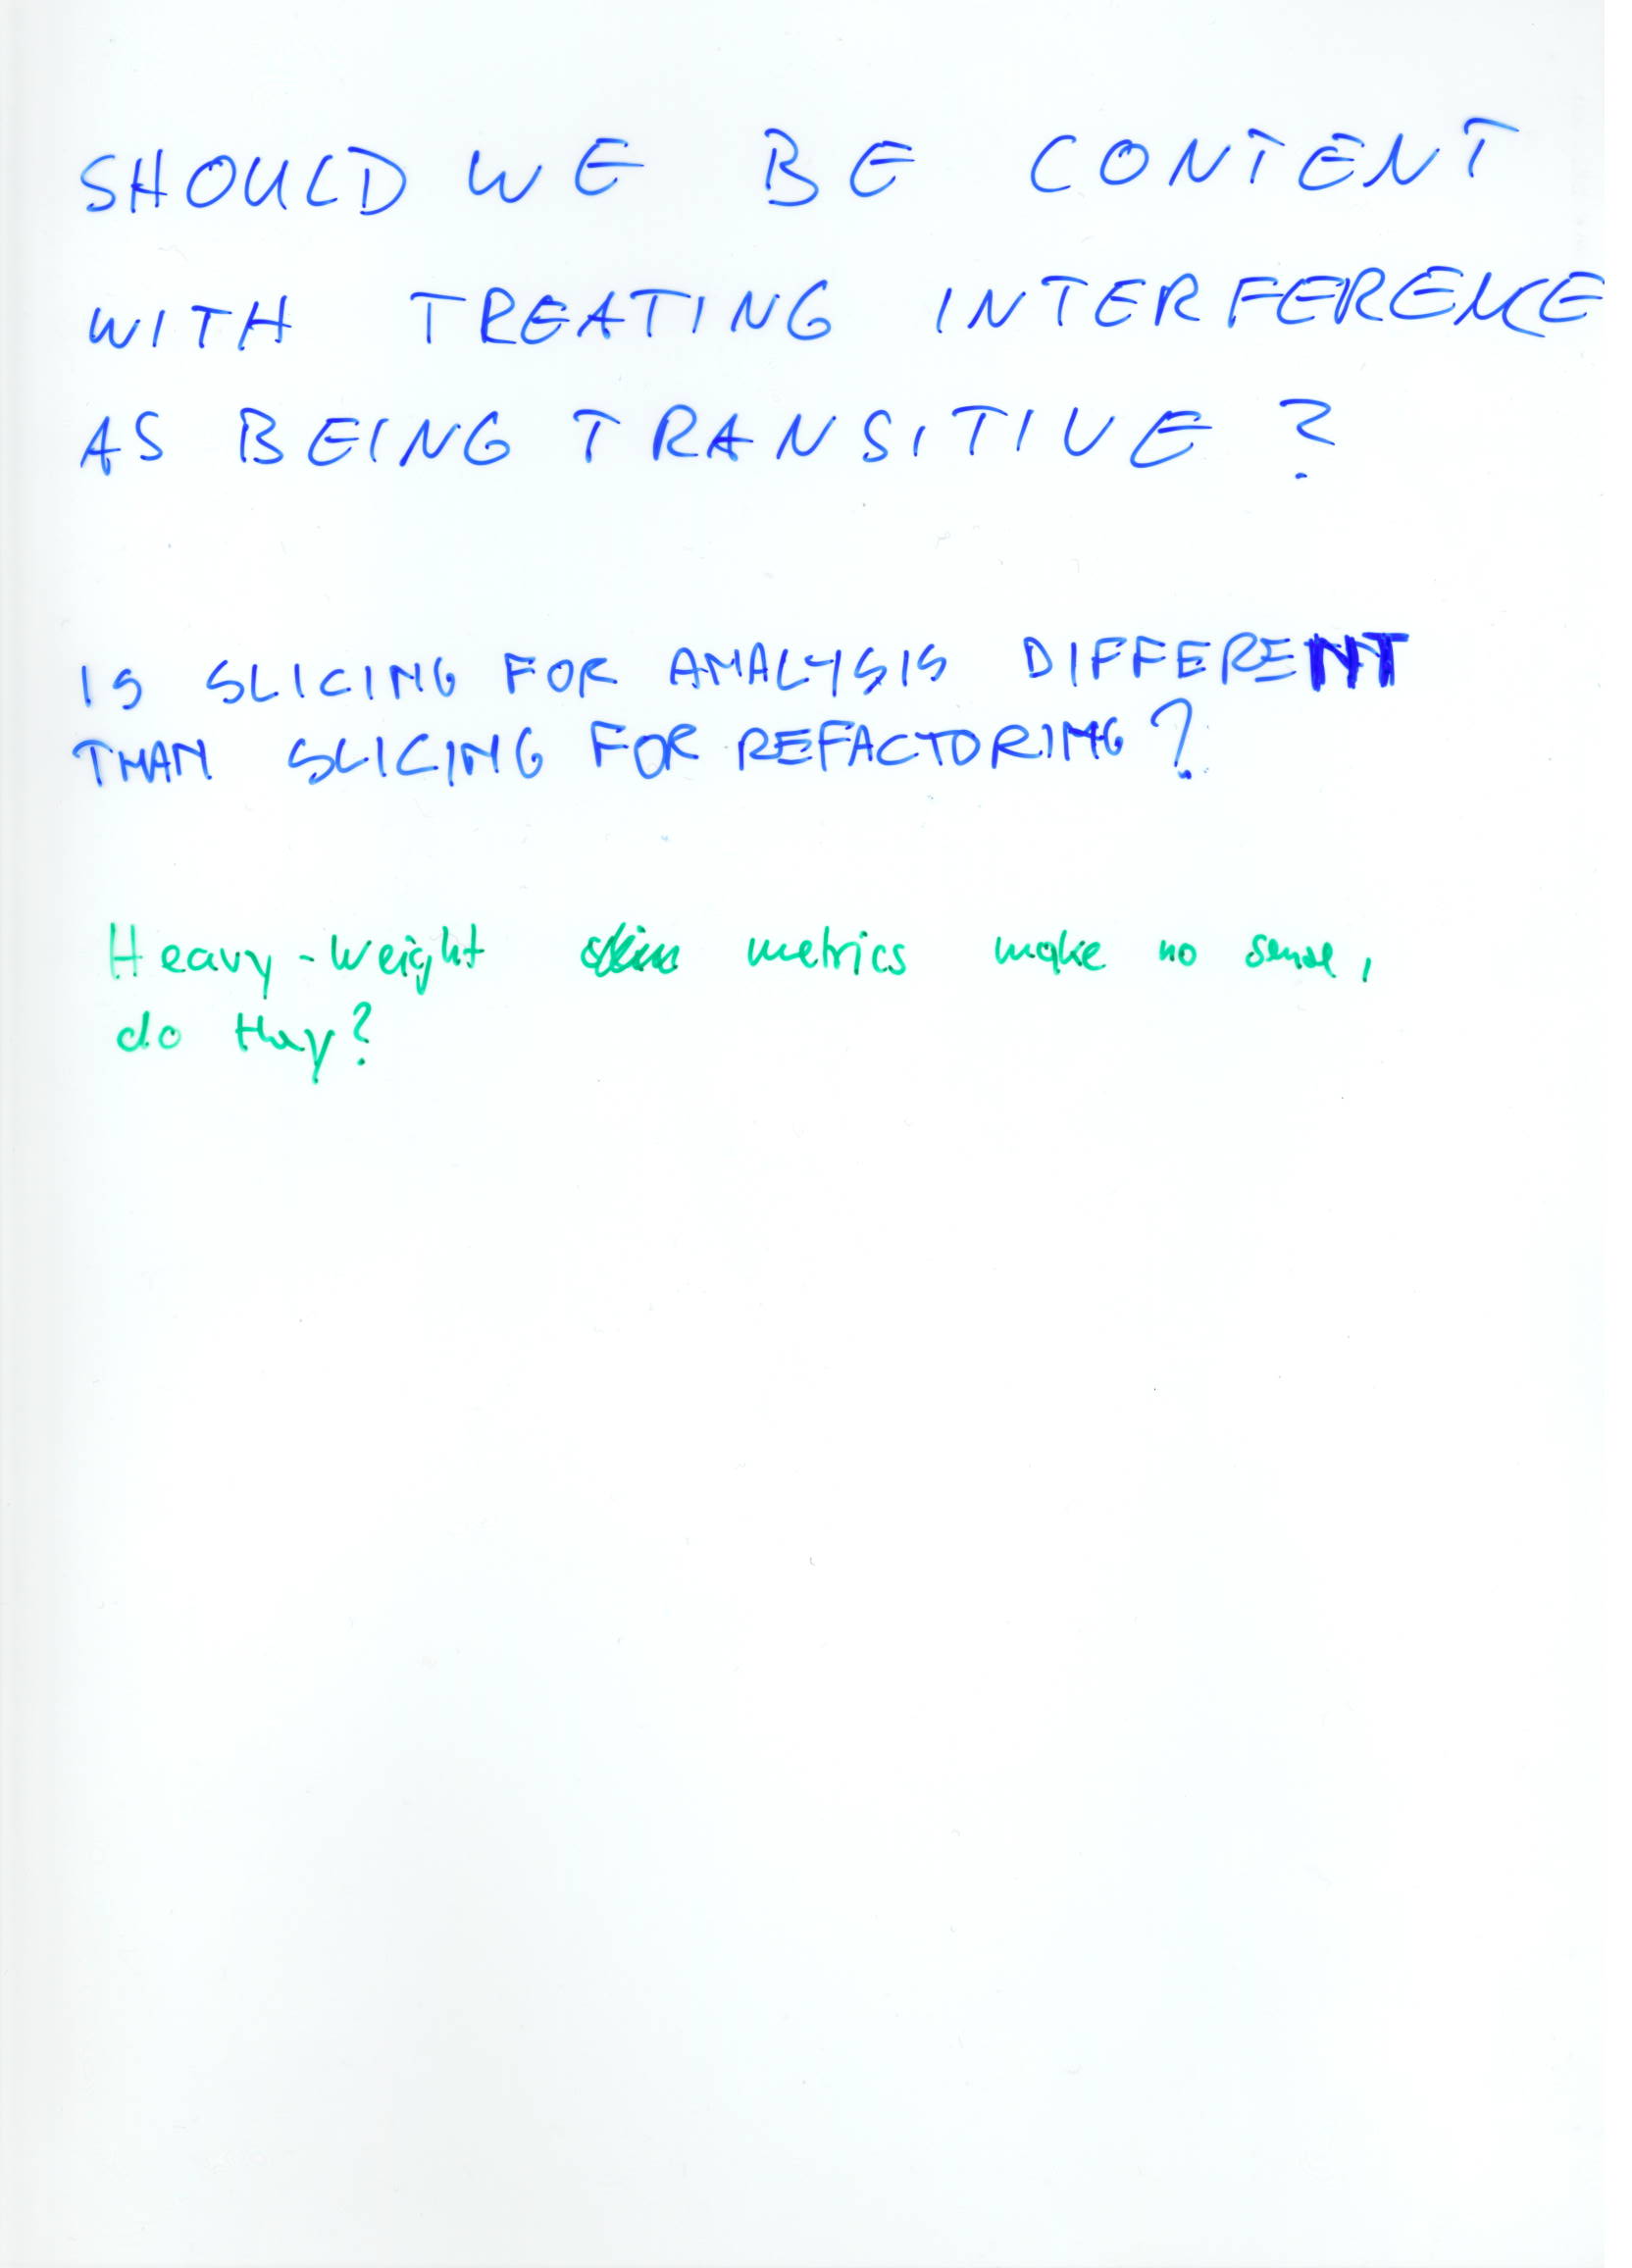 SHOULD WE BE CONTENT
WITH TREATING INTERFERENCE
AS BEING TRANSITIVE?
IS SLICING FOR ANALYSIS DIFFERENT
THAN SLICING FOR REFACTORING?
Heavy-weight metrics make no sense,
do they?